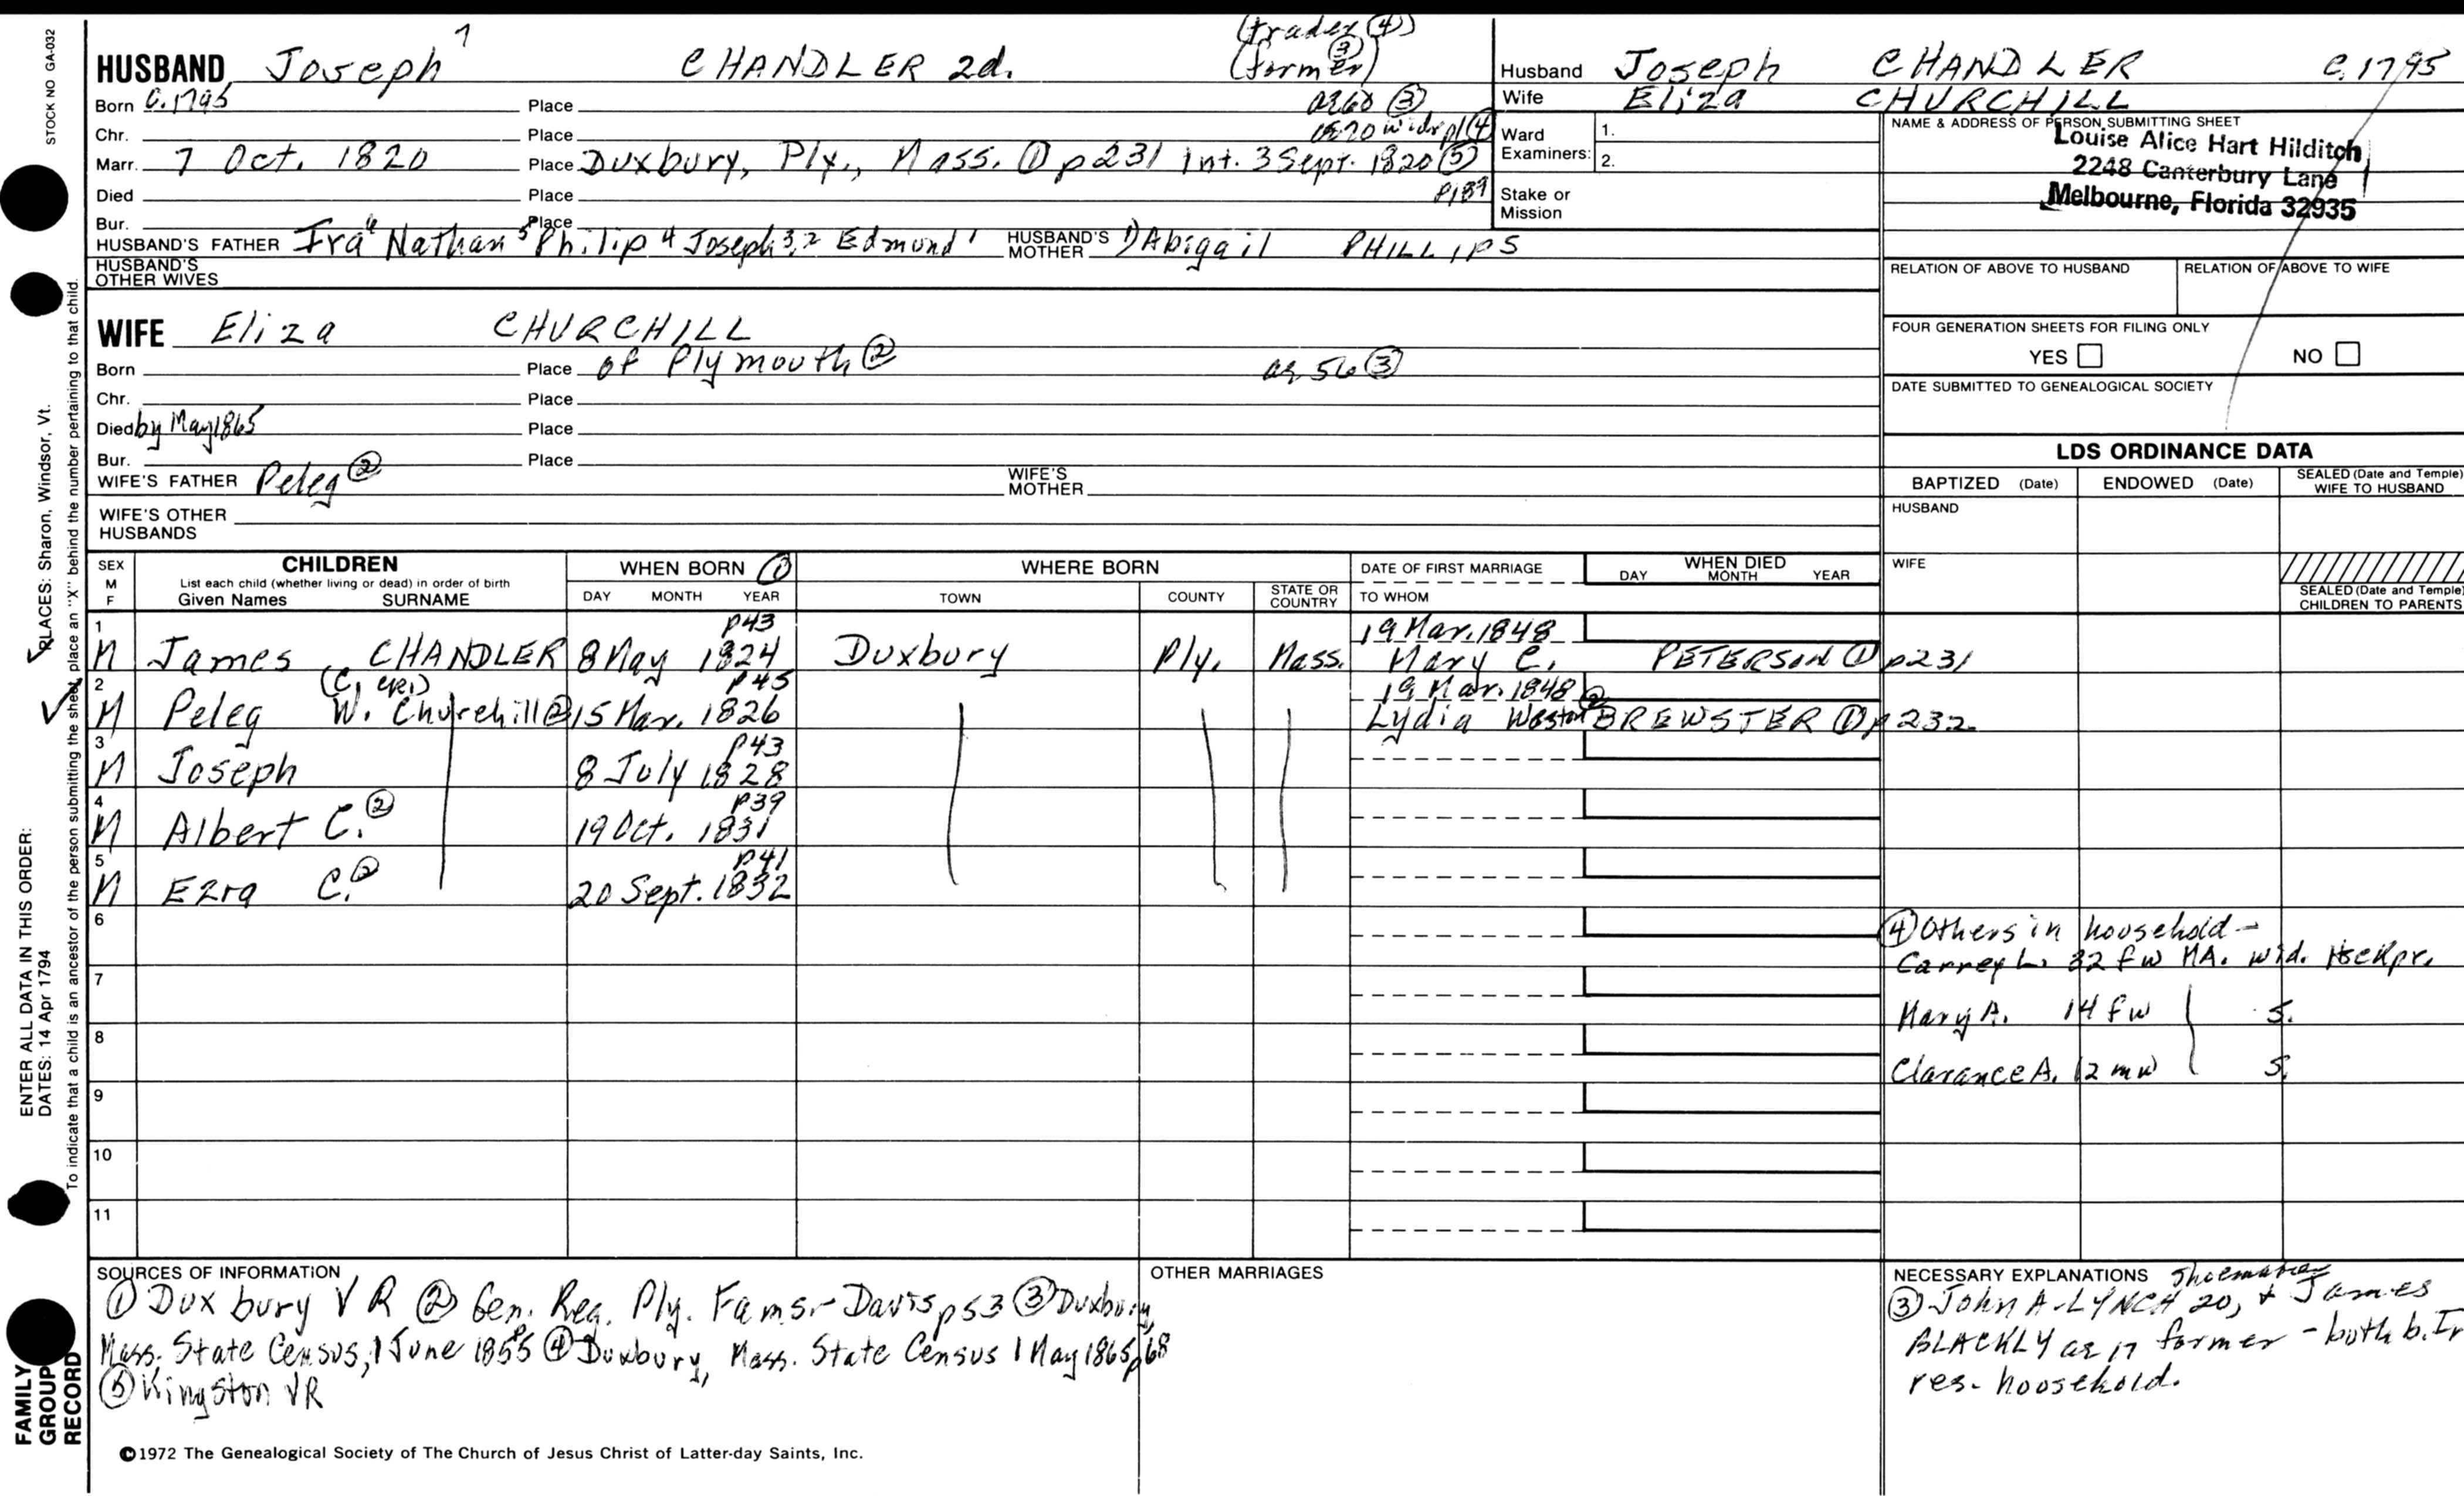 STOCK NO GA-032
HUSBAND Joseph 7 CHANDLER 2d. (trader ④)
(farmer ③)
Born c.1795 Place ag 60 ③
Chr. Place
Marr. 7 Oct. 1820 Place Duxbury, Ply., Mass. ① p231 int. 3 Sept. 1820 ⑤
Died Place p189
Bur. Place
HUSBAND'S FATHER Ira 6 Nathan 5 Philip 4 Joseph 3,2 Edmund 1 HUSBAND'S MOTHER 1) Abigail PHILLIPS
HUSBAND'S OTHER WIVES
WIFE Eliza CHURCHILL
Born Place of Plymouth ② ag. 56 ③
Chr. Place
Died by May 1865 Place
Bur. Place
WIFE'S FATHER Peleg ② WIFE'S MOTHER
WIFE'S OTHER HUSBANDS
Husband Joseph CHANDLER C. 1795
Wife Eliza CHURCHILL
Ward Examiners: 1.
2.
Stake or Mission
NAME & ADDRESS OF PERSON SUBMITTING SHEET
Louise Alice Hart Hilditch
2248 Canterbury Lane
Melbourne, Florida 32935
RELATION OF ABOVE TO HUSBAND RELATION OF ABOVE TO WIFE
FOUR GENERATION SHEETS FOR FILING ONLY
YES NO
DATE SUBMITTED TO GENEALOGICAL SOCIETY
LDS ORDINANCE DATA
BAPTIZED (Date) ENDOWED (Date) SEALED (Date and Temple) WIFE TO HUSBAND
HUSBAND
WIFE
SEALED (Date and Temple) CHILDREN TO PARENTS
SEX M F CHILDREN WHEN BORN ① WHERE BORN DATE OF FIRST MARRIAGE WHEN DIED
List each child (whether living or dead) in order of birth
Given Names SURNAME DAY MONTH YEAR TOWN COUNTY STATE OR COUNTRY TO WHOM DAY MONTH YEAR
1 p43 19 Mar. 1848
M James CHANDLER 8 May 1824 Duxbury Ply. Mass. Mary C. PETERSON ① p231
2 p45 19 Mar. 1848 ②
M Peleg W. Churchill ② 15 Mar. 1826 Lydia Weston BREWSTER ① p232
3 p43
M Joseph 8 July 1828
4 p39
M Albert C. ② 19 Oct. 1831
5 p41
M Ezra C. ② 20 Sept. 1832
6
7
8
9
10
11
④ Others in household -
32 fw MA. wid. Hsekpr.
Mary A. 14 fw S.
Clarance A. 12 mw S.
SOURCES OF INFORMATION
① Duxbury VR ② Gen. Reg. Ply. Fams. - Davis p53 ③ Duxbury,
Mass. State Census, 1 June 1855 ④ Duxbury, Mass. State Census 1 May 1865 p68
⑤ Kingston VR
OTHER MARRIAGES
NECESSARY EXPLANATIONS shoemaker
③ John A. LYNCH 20, & James
BLACKLY ag 17 farmer - both b. Ir
res. household.
©1972 The Genealogical Society of The Church of Jesus Christ of Latter-day Saints, Inc.
ENTER ALL DATA IN THIS ORDER:
DATES: 14 Apr 1794
PLACES: Sharon, Windsor, Vt.
To indicate that a child is an ancestor of the person submitting the sheet, place an "X" behind the number pertaining to that child.
FAMILY GROUP RECORD